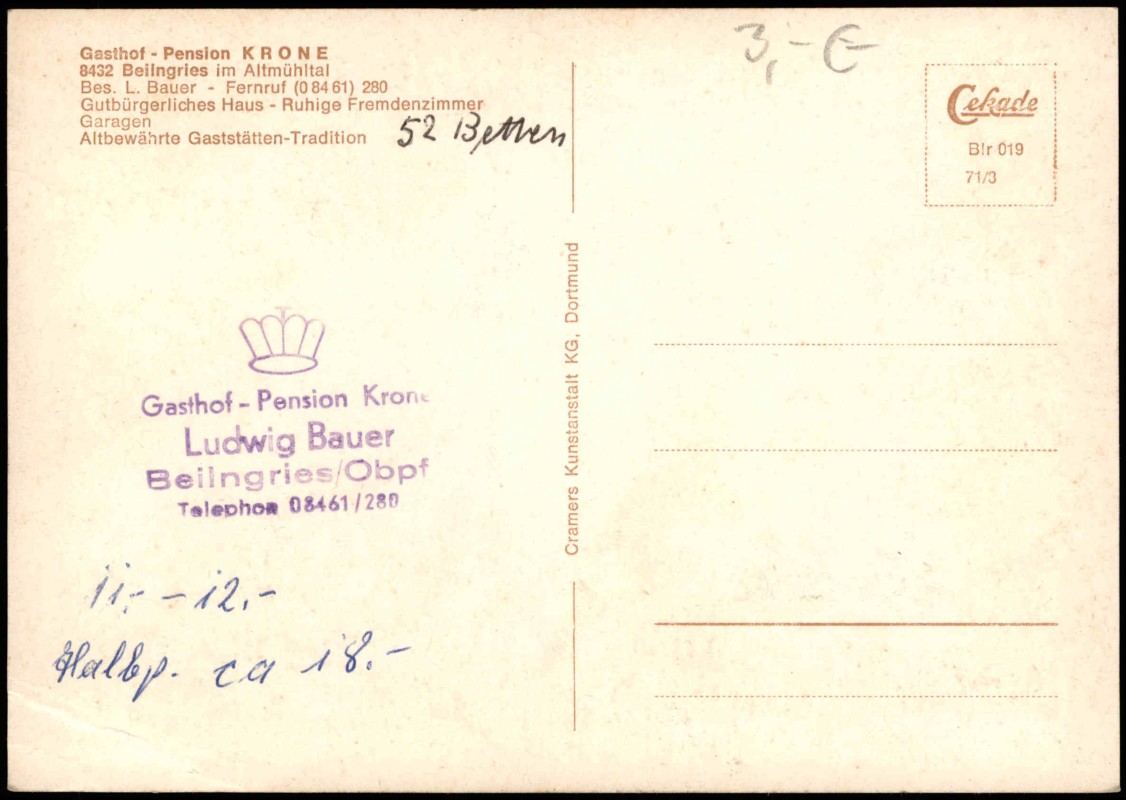 Gasthof - Pension KRONE
8432 Beilngries im Altmühltal
Bes. L. Bauer - Fernruf (0 84 61) 280
Gutbürgerliches Haus - Ruhige Fremdenzimmer
Garagen
Altbewährte Gaststätten-Tradition
52 Betten
Gasthof - Pension Krone
Ludwig Bauer
Beilngries/Obpf
Telephon 08461/280
11,- - 12,-
Halbp. ca 18.-
Cramers Kunstanstalt KG, Dortmund
3,- €
Cekade
Blr 019
71/3